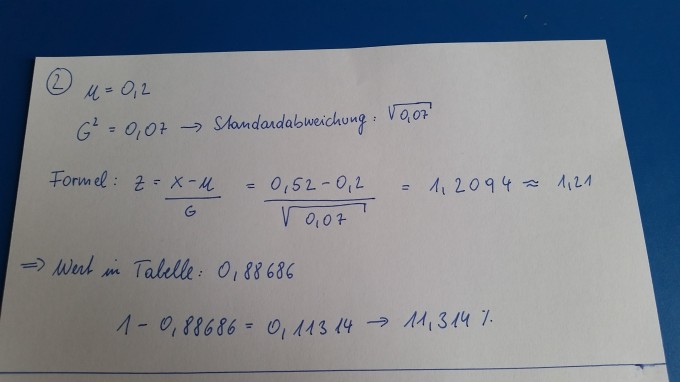 ② μ = 0,2
σ² = 0,07 → Standardabweichung: √0,07
Formel: z = (x-μ)/σ = (0,52-0,2)/√0,07 = 1,2094 ≈ 1,21
⇒ Wert in Tabelle: 0,88686
1 - 0,88686 = 0,11314 → 11,314 %